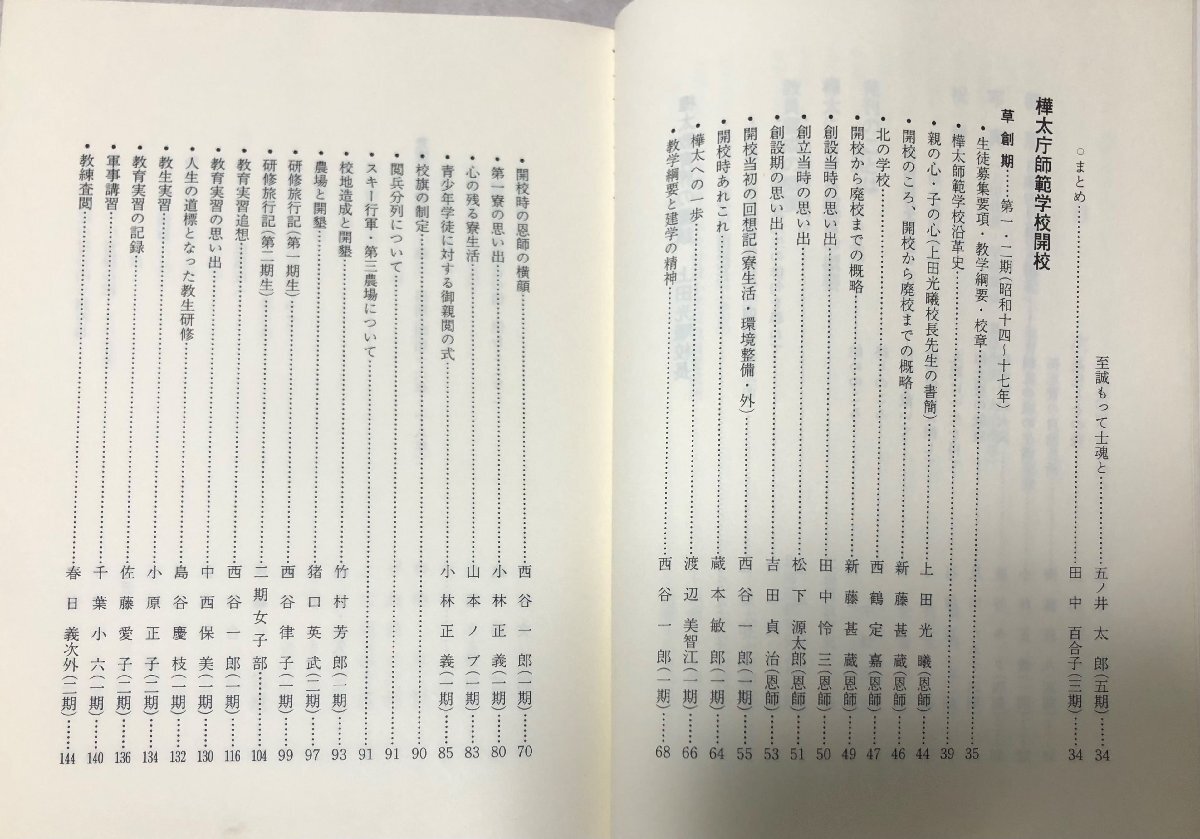 至誠もって士魂と…………五ノ井　太　郎(五期)……34
○まとめ…………田　中　百合子(三期)……34
樺太庁師範学校開校
草創期……第一・二期(昭和十四～十七年)
・生徒募集要項・教学綱要・校章…………35
・樺太師範学校沿革史…………39
・親の心・子の心(上田光曦校長先生の書簡)…………上　田　光　曦(恩師)……44
・開校のころ、開校から廃校までの概略…………新　藤　甚　蔵(恩師)……46
・北の学校…………西　鶴　定　嘉(恩師)……47
・開校から廃校までの概略…………新　藤　甚　蔵(恩師)……49
・創設当時の思い出…………田　中　怜　三(恩師)……50
・創立当時の思い出…………松　下　源太郎(恩師)……51
・創設期の思い出…………吉　田　貞　治(恩師)……53
・開校当初の回想記(寮生活・環境整備・外)…………西　谷　一　郎(一期)……55
・開校時あれこれ…………蔵　本　敏　郎(一期)……64
・樺太への一歩…………渡　辺　美智江(一期)……66
・教学綱要と建学の精神…………西　谷　一　郎(一期)……68
・開校時の恩師の横顔…………西　谷　一　郎(一期)……70
・第一寮の思い出…………小　林　正　義(一期)……80
・心の残る寮生活…………山　本　ノ　ブ(一期)……83
・青少年学徒に対する御親閲の式…………小　林　正　義(一期)……85
・校旗の制定…………90
・閲兵分列について…………91
・スキー行軍・第三農場について…………91
・校地造成と開墾…………竹　村　芳　郎(二期)……93
・農場と開墾…………猪　口　英　武(二期)……97
・研修旅行記(第一期生)…………西　谷　律　子(一期)……99
・研修旅行記(第二期生)…………二　期　女　子　部……104
・教育実習追想…………西　谷　一　郎(一期)……116
・教育実習の思い出…………中　西　保　美(一期)……130
・人生の道標となった教生研修…………島　谷　慶　枝(一期)……132
・教生実習…………小　原　正　子(二期)……134
・教育実習の記録…………佐　藤　愛　子(二期)……136
・軍事講習…………千　葉　小　六(一期)……140
・教練査閲…………春　日　義次外(二期)……144